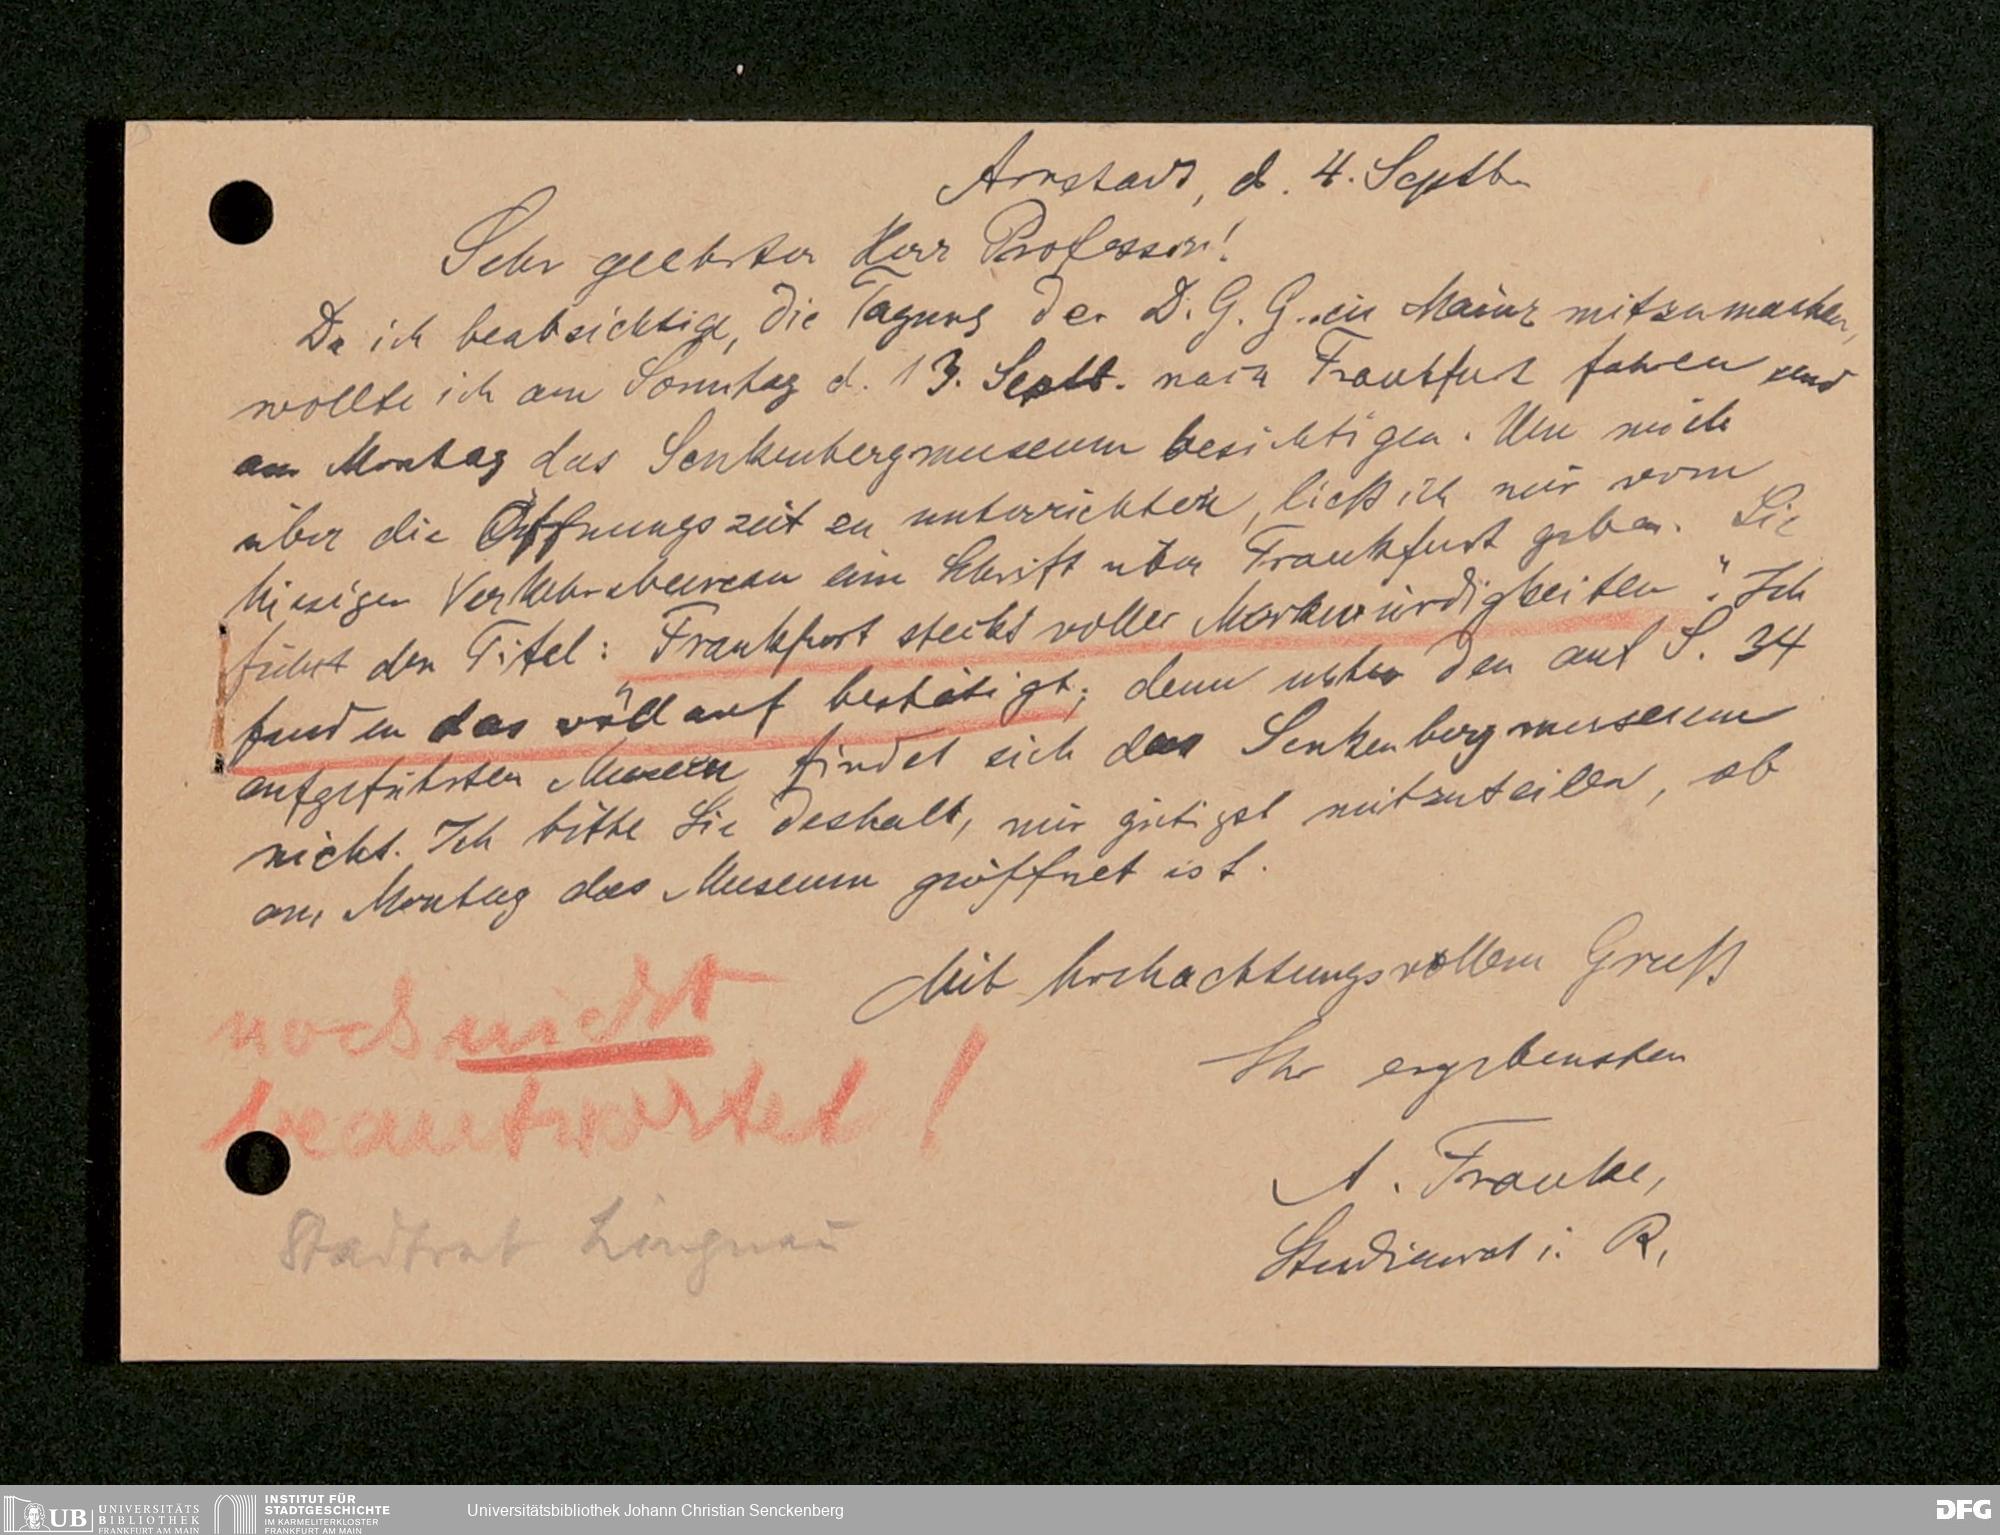 Arnstadt, d. 4. Septb.
Sehr geehrter Herr Professor!
Da ich beabsichtige, die Tagung der D. G. G. in Mainz mitzumachen,
wollte ich am Sonntag d. 13. Septb. nach Frankfurt fahren und
am Montag das Senkenbergmuseum besichtigen. Um mich
über die Öffnungszeit zu unterrichten, ließ ich mir vom
hiesigen Verkehrsbureau eine Schrift über Frankfurt geben. Sie
führt den Titel: „Frankfurt steckt voller Merkwürdigkeiten“. Ich
fand en das vollauf bestätigt; denn unter den auf S. 34
aufgeführten Museen findet sich das Senkenbergmuseum
nicht. Ich bitte Sie deshalb, mir gütigst mitzuteilen, ob
am Montag das Museum geöffnet ist.
Mit hochachtungsvollem Gruß
Ihr ergebenster
A. Franke,
Studienrat i. R.
noch nicht
beantwortet!
Stadtrat Lingnau
UB UNIVERSITÄTS
BIBLIOTHEK
FRANKFURT AM MAIN
INSTITUT FÜR
STADTGESCHICHTE
IM KARMELITERKLOSTER
FRANKFURT AM MAIN
Universitätsbibliothek Johann Christian Senckenberg
DFG